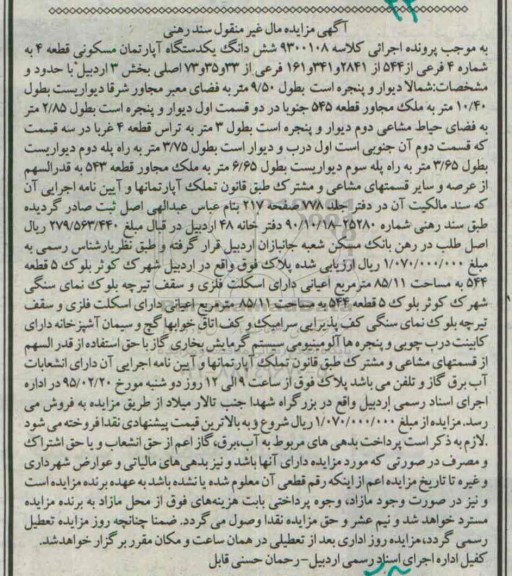 آگهی مزایده مال غیر منقول سند رهنی
به موجب پرونده اجرائی کلاسه ۹۳۰۰۱۰۸ شش دانگ یکدستگاه آپارتمان مسکونی قطعه ۴ به
شماره ۴ فرعی از ۵۴۴ از ۲۸۴۱ و ۳۴۱ و ۱۶۱ فرعی از ۳۳ و ۳۵ و ۷۳ اصلی بخش ۳ اردبیل با حدود و
مشخصات: شمالا دیوار و پنجره است بطول ۹/۵۰ متر به فضای معبر مجاور شرقا دیواریست بطول
۱۰/۴۰ متر به ملک مجاور قطعه ۵۴۵ جنوبا در دو قسمت اول دیوار و پنجره است بطول ۲/۸۵ متر
به فضای حیاط مشاعی دوم دیوار و پنجره است بطول ۳ متر به تراس قطعه ۴ غربا در سه قسمت
که قسمت دوم آن جنوبی است اول درب و دیوار است بطول ۳/۷۵ متر به راه پله دوم دیواریست
بطول ۳/۶۵ متر به راه پله سوم دیواریست بطول ۶/۶۵ متر به ملک مجاور قطعه ۵۴۳ به قدرالسهم
از عرصه و سایر قسمتهای مشاعی و مشترک طبق قانون تملک آپارتمانها و آیین نامه اجرایی آن
که سند مالکیت آن در دفتر جلد ۷۷۸ صفحه ۲۱۷ بنام عباس عبدالهی اصل ثبت صادر گردیده
طبق سند رهنی شماره ۲۵۲۸۰-۹۰/۱۰/۱۸ دفتر خانه ۴۸ اردبیل در قبال مبلغ ۲۷۹/۵۶۳/۴۴۰ ریال
اصل طلب در رهن بانک مسکن شعبه جانبازان اردبیل قرار گرفته و طبق نظر کارشناس رسمی به
مبلغ ۱/۰۷۰/۰۰۰/۰۰۰ ریال ارزیابی شده پلاک فوق واقع در اردبیل شهرک کوثر بلوک ۵ قطعه
۵۴۴ به مساحت ۸۵/۱۱ مترمربع اعیانی دارای اسکلت فلزی و سقف تیرچه بلوک نمای سنگی
شهرک کوثر بلوک ۵ قطعه ۵۴۴ به مساحت ۸۵/۱۱ مترمربع اعیانی دارای اسکلت فلزی و سقف
تیرچه بلوک نمای سنگی کف پذیرایی سرامیک و کف اتاق خوابها گچ و سیمان آشپزخانه دارای
کابینت درب چوبی و پنجره ها آلومینیومی سیستم گرمایش بخاری گاز با حق استفاده از قدر السهم
از قسمتهای مشاعی و مشترک طبق قانون تملک آپارتمانها و آیین نامه اجرایی آن دارای انشعابات
آب برق گاز و تلفن می باشد پلاک فوق از ساعت ۹ الی ۱۲ روز دو شنبه مورخ ۹۵/۰۲/۲۰ در اداره
اجرای اسناد رسمی اردبیل واقع در بزرگراه شهدا جنب تالار میلاد از طریق مزایده به فروش می
رسد. مزایده از مبلغ ۱/۰۷۰/۰۰۰/۰۰۰ ریال شروع و به بالاترین قیمت پیشنهادی نقدا فروخته می شود
.لازم به ذکر است پرداخت بدهی های مربوط به آب،برق،گاز اعم از حق انشعاب و یا حق اشتراک
و مصرف در صورتی که مورد مزایده دارای آنها باشد و نیز بدهی های مالیاتی و عوارض شهرداری
و غیره تا تاریخ مزایده اعم از اینکه رقم قطعی آن معلوم شده یا نشده باشد به عهده برنده مزایده است
و نیز در صورت وجود مازاد، وجوه پرداختی بابت هزینه‌های فوق از محل مازاد به برنده مزایده
مسترد خواهد شد و نیم عشر و حق مزایده نقدا وصول می گردد. ضمنا چنانچه روز مزایده تعطیل
رسمی گردد،مزایده روز اداری بعد از تعطیلی در همان ساعت و مکان مقرر برگزار خواهدشد.
کفیل اداره اجرای اسناد رسمی اردبیل- رحمان حسنی قابل